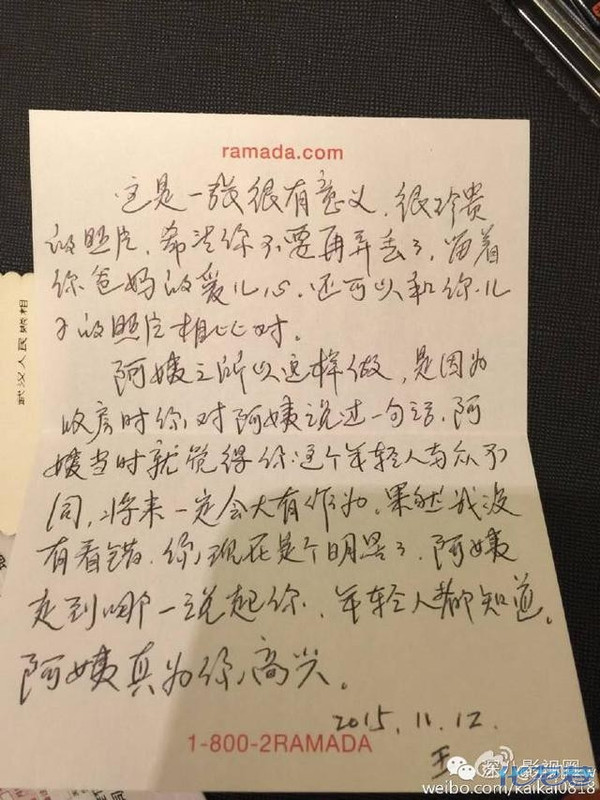 ramada.com
这是一张很有意义、很珍贵
的照片,希望你不要再弄丢了,留着
你爸妈的爱儿心,还可以和你儿
子的照片相比对。
阿姨之所以这样做,是因为
收房时你对阿姨说过一句话,阿
姨当时就觉得你这个年轻人与众不
同,将来一定会大有作为。果然我没
有看错,你现在是个明星了,阿姨
走到哪一说起你,年轻人都知道。
阿姨真为你高兴。
2015.11.12.
王
1-800-2RAMADA
武汉人民照相
深八影视圈
weibo.com/kaikai0818